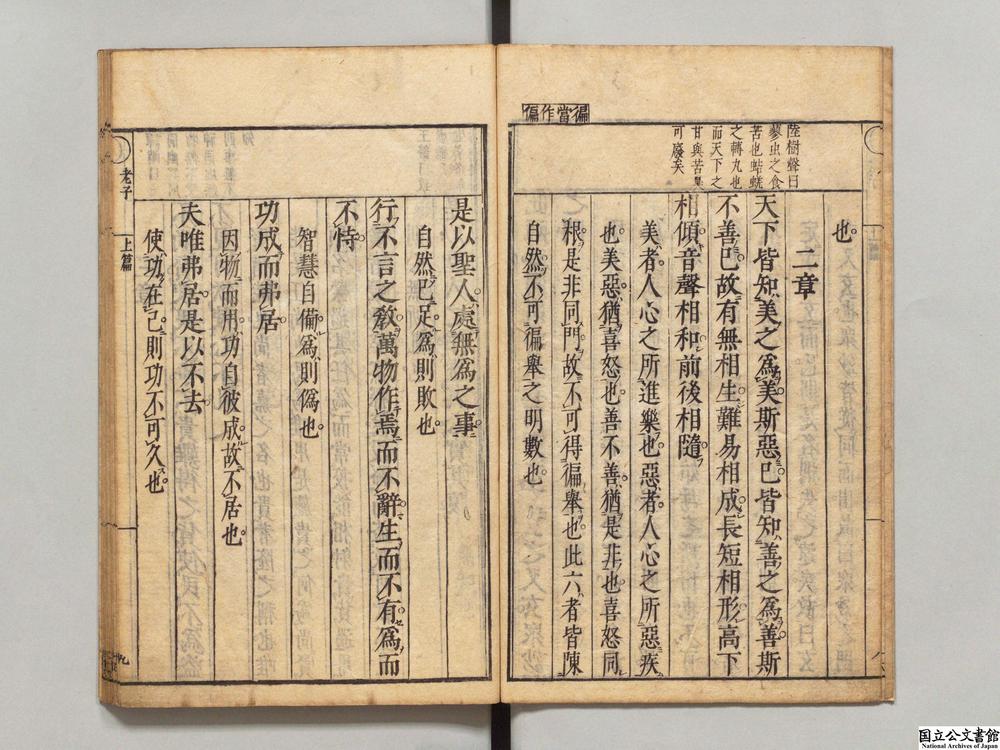 徧當作偏
陸樹聲曰
蓼虫之食
苦也蛣蜣
之轉丸也
而天下之
甘與苦果
可廢矣
也
二章
天下皆知美之爲美斯惡已皆知善之爲善斯
不善已故有無相生難易相成長短相形高下
相傾音聲相和前後相隨
美者人心之所進樂也惡者人心之所惡疾
也美惡猶喜怒也善不善猶是非也喜怒同
根是非同門故不可得徧舉也此六者皆陳
自然不可徧舉之明數也
是以聖人處無爲之事
自然已足爲則敗也
行不言之敎萬物作焉而不辭生而不有爲而
不恃
智慧自備爲則僞也
功成而弗居
因物而用功自彼成故不居也
夫唯弗居是以不去
使功在己則功不可久也
老子
上篇
国立公文書館
National Archives of Japan